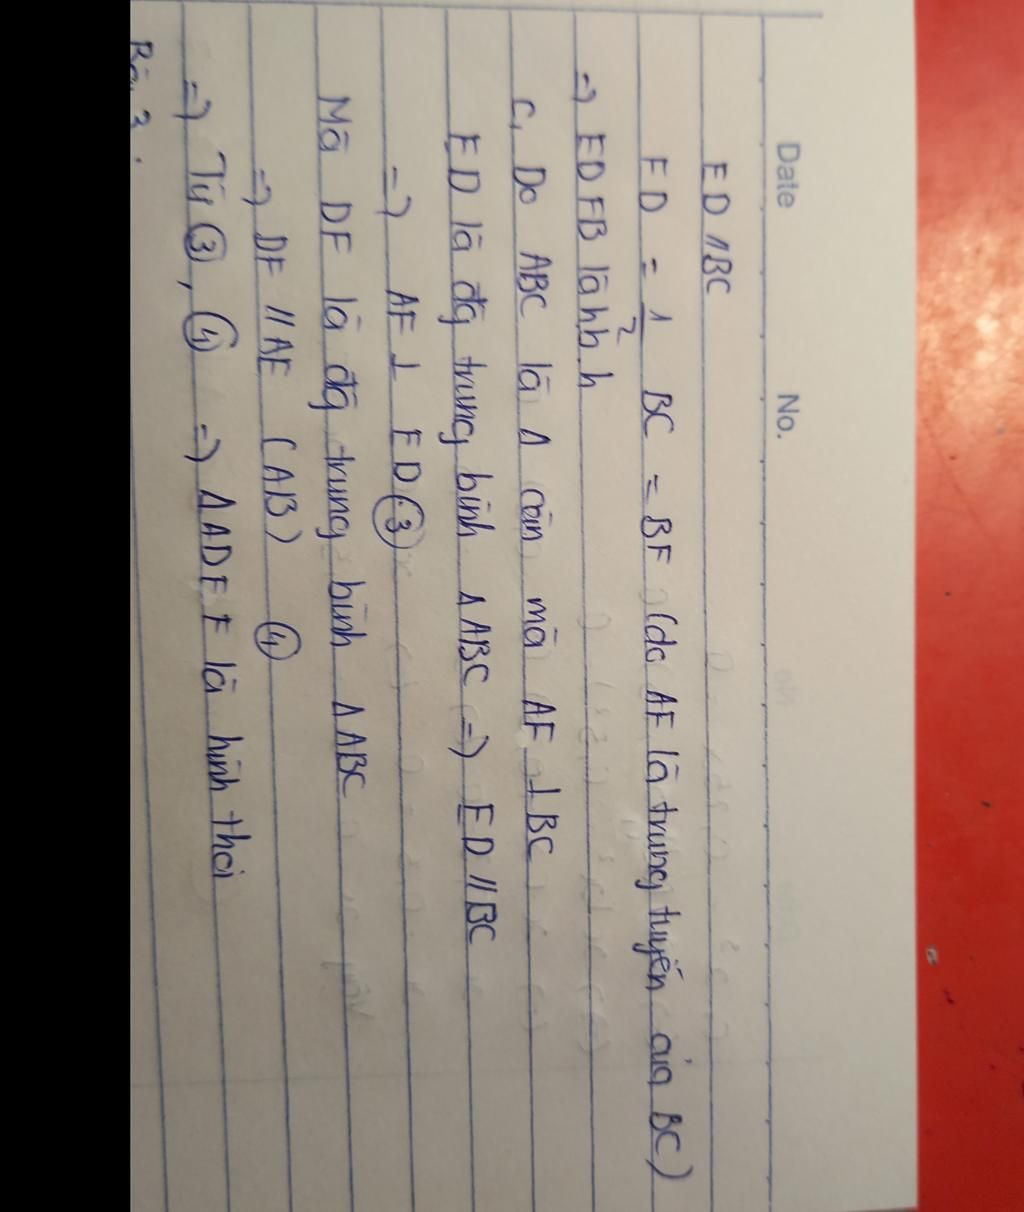 Date No.
ED // BC
ED = 1/2 BC = BF (do AF là trung tuyến của BC)
=) EDFB là hbh
C, Do ABC là Δ cân mà AF ⊥ BC
ED là đg trung bình ΔABC =) ED // BC
=) AF ⊥ ED (3)
Mà DF là đg trung bình ΔABC
=) DF // AE (AB) (4)
=) Từ (3), (4) =) ΔADFE là hình thoi